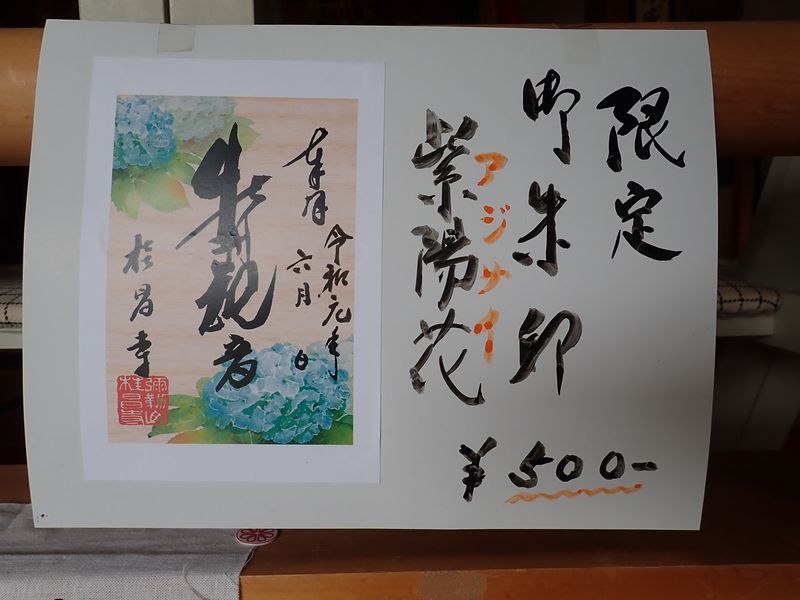 限定
御朱印
アジサイ
紫陽花
¥500-
令和元年
六月 日
奉拝
観音
桂昌寺
彌勒山
桂昌寺